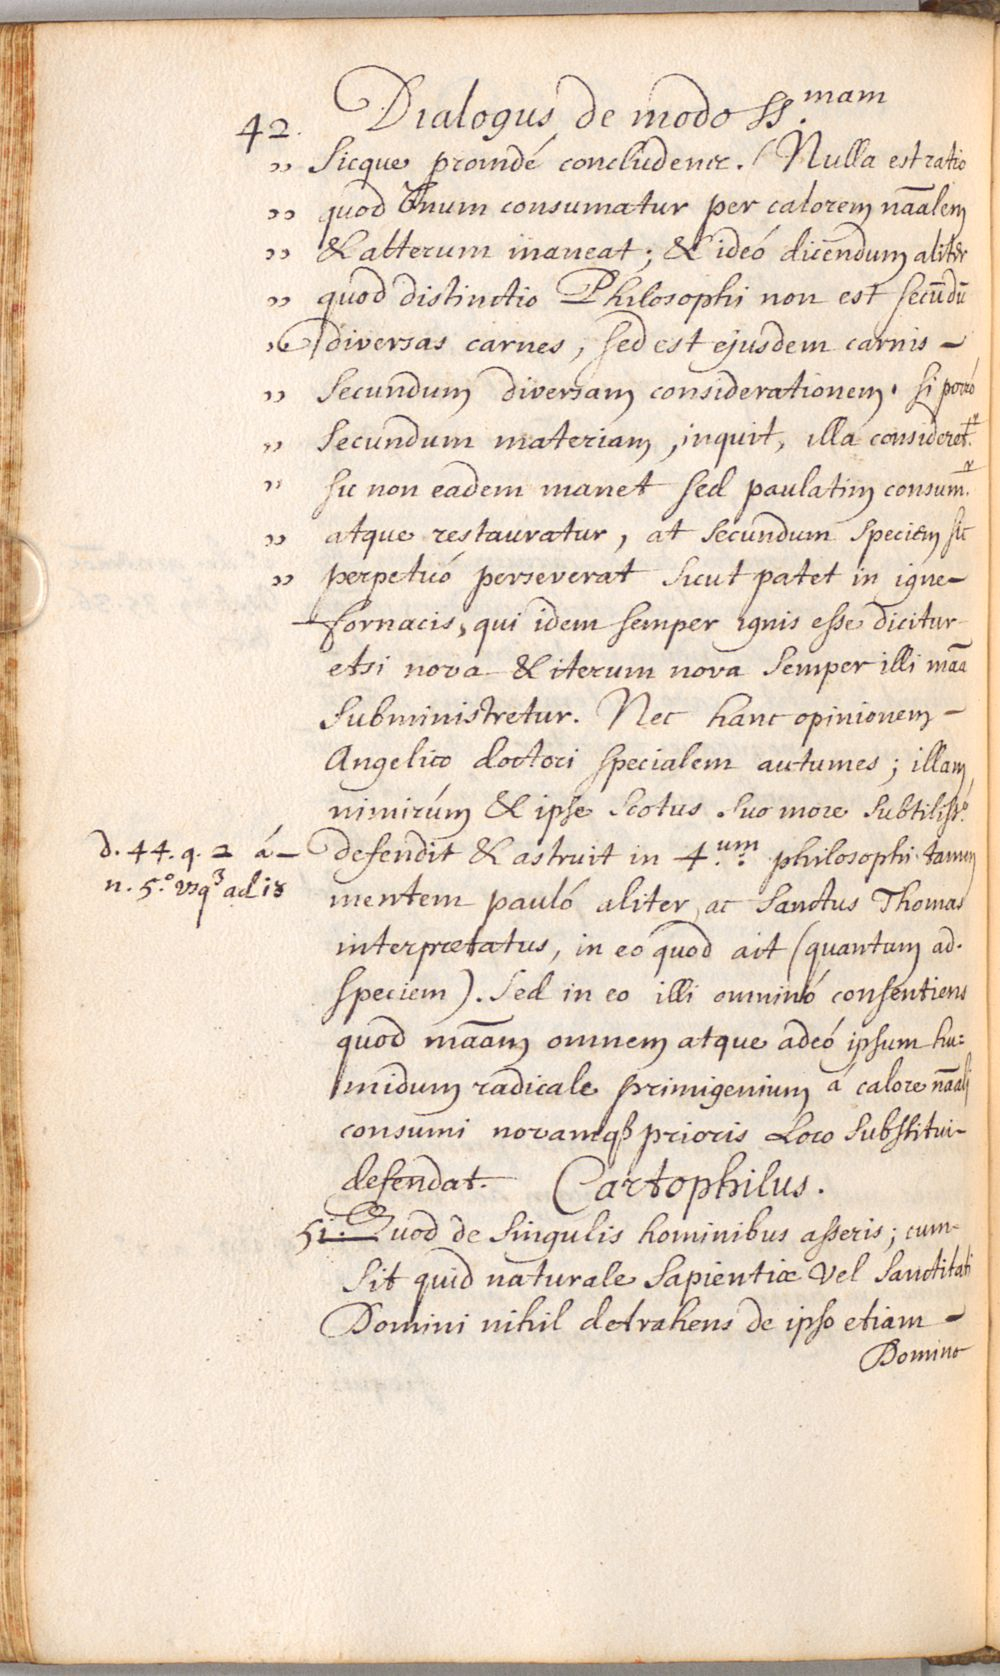 42. Dialogus de modo SS.mam
„ Sicque proindé concludens. (Nulla est ratio
„ quod Unum consumatur per calorem nāalem
„ & alterum maneat; & ideó dicendum aliter
„ quod distinctio Philosophi non est secūdū
„ diversas carnes, sed est ejusdem carnis –
„ Secundum diversam considerationem. si porró
„ Secundum materiam, inquit, illa consideret.r
„ sic non eadem manet sed paulatim consum.r
„ atque restauratur, at secundum speciem sic
„ perpetuó perseverat sicut patet in igne
fornacis, qui idem semper ignis esse dicitur
etsi nova & iterum nova semper illi māa
subministretur. Nec hanc opinionem –
Angelico doctori specialem autumes; illam,
nimirúm & ipse Scotus suo more subtiliss.o
d. 44. q. 2 á –
n. 5.o usq3 ad 18
defendit & astruit in 4.um philosophi tamen
mentem pauló aliter, ac Sanctus Thomas
interprætatus, in eo quod ait (quantum ad
speciem). Sed in eo illi omninó consentiens
quod māam omnem atque adeó ipsum hu=
midum radicale primigenium á calore nāali
consumi novamq3 prioris Loco substitui
defendat. Cartophilus.
51. Quod de singulis hominibus asseris; cum
sit quid naturale sapientiæ vel sanctitati
Domini nihil detrahens de ipso etiam –
Domino